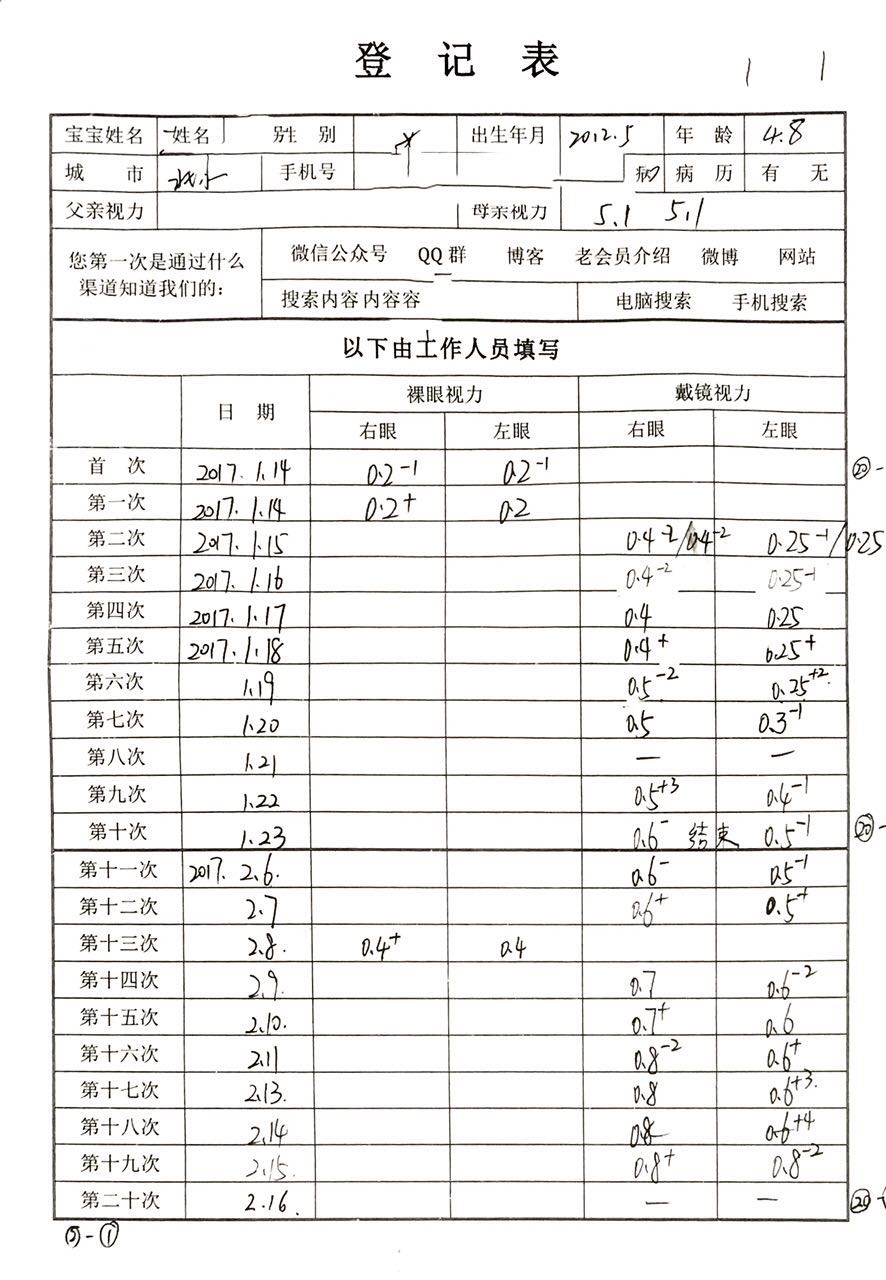 登 记 表
宝宝姓名 姓名 别性 别 出生年月 2012.5 年 龄 4.8
城 市 手机号 病 病 历 有 无
父亲视力 母亲视力 5.1 5.1
您第一次是通过什么
渠道知道我们的：
微信公众号 QQ群 博客 老会员介绍 微博 网站
搜索内容内容容 电脑搜索 手机搜索
以下由工作人员填写
日 期 裸眼视力 戴镜视力
右眼 左眼 右眼 左眼
首 次 2017.1.14 0.2-1 0.2-1 ⑳-
第一次 2017.1.14 0.2+ 0.2
第二次 2017.1.15 0.4-2/0.4-2 0.25-1/0.25
第三次 2017.1.16 0.4-2 0.25-1
第四次 2017.1.17 0.4 0.25
第五次 2017.1.18 0.4+ 0.25+
第六次 1.19 0.5-2 0.25+2
第七次 1.20 0.5 0.3-1
第八次 1.21 — —
第九次 1.22 0.5+3 0.4-1
第十次 1.23 0.6- 结束 0.5-1 ⑳-
第十一次 2017.2.6. 0.6- 0.5-1
第十二次 2.7 0.6+ 0.5+
第十三次 2.8. 0.4+ 0.4
第十四次 2.9. 0.7 0.6-2
第十五次 2.10. 0.7+ 0.6
第十六次 2.11 0.8-2 0.6+
第十七次 2.13. 0.8 0.6+3.
第十八次 2.14 0.8 0.6+4
第十九次 2.15. 0.8+ 0.8-2
第二十次 2.16. — — ⑳-